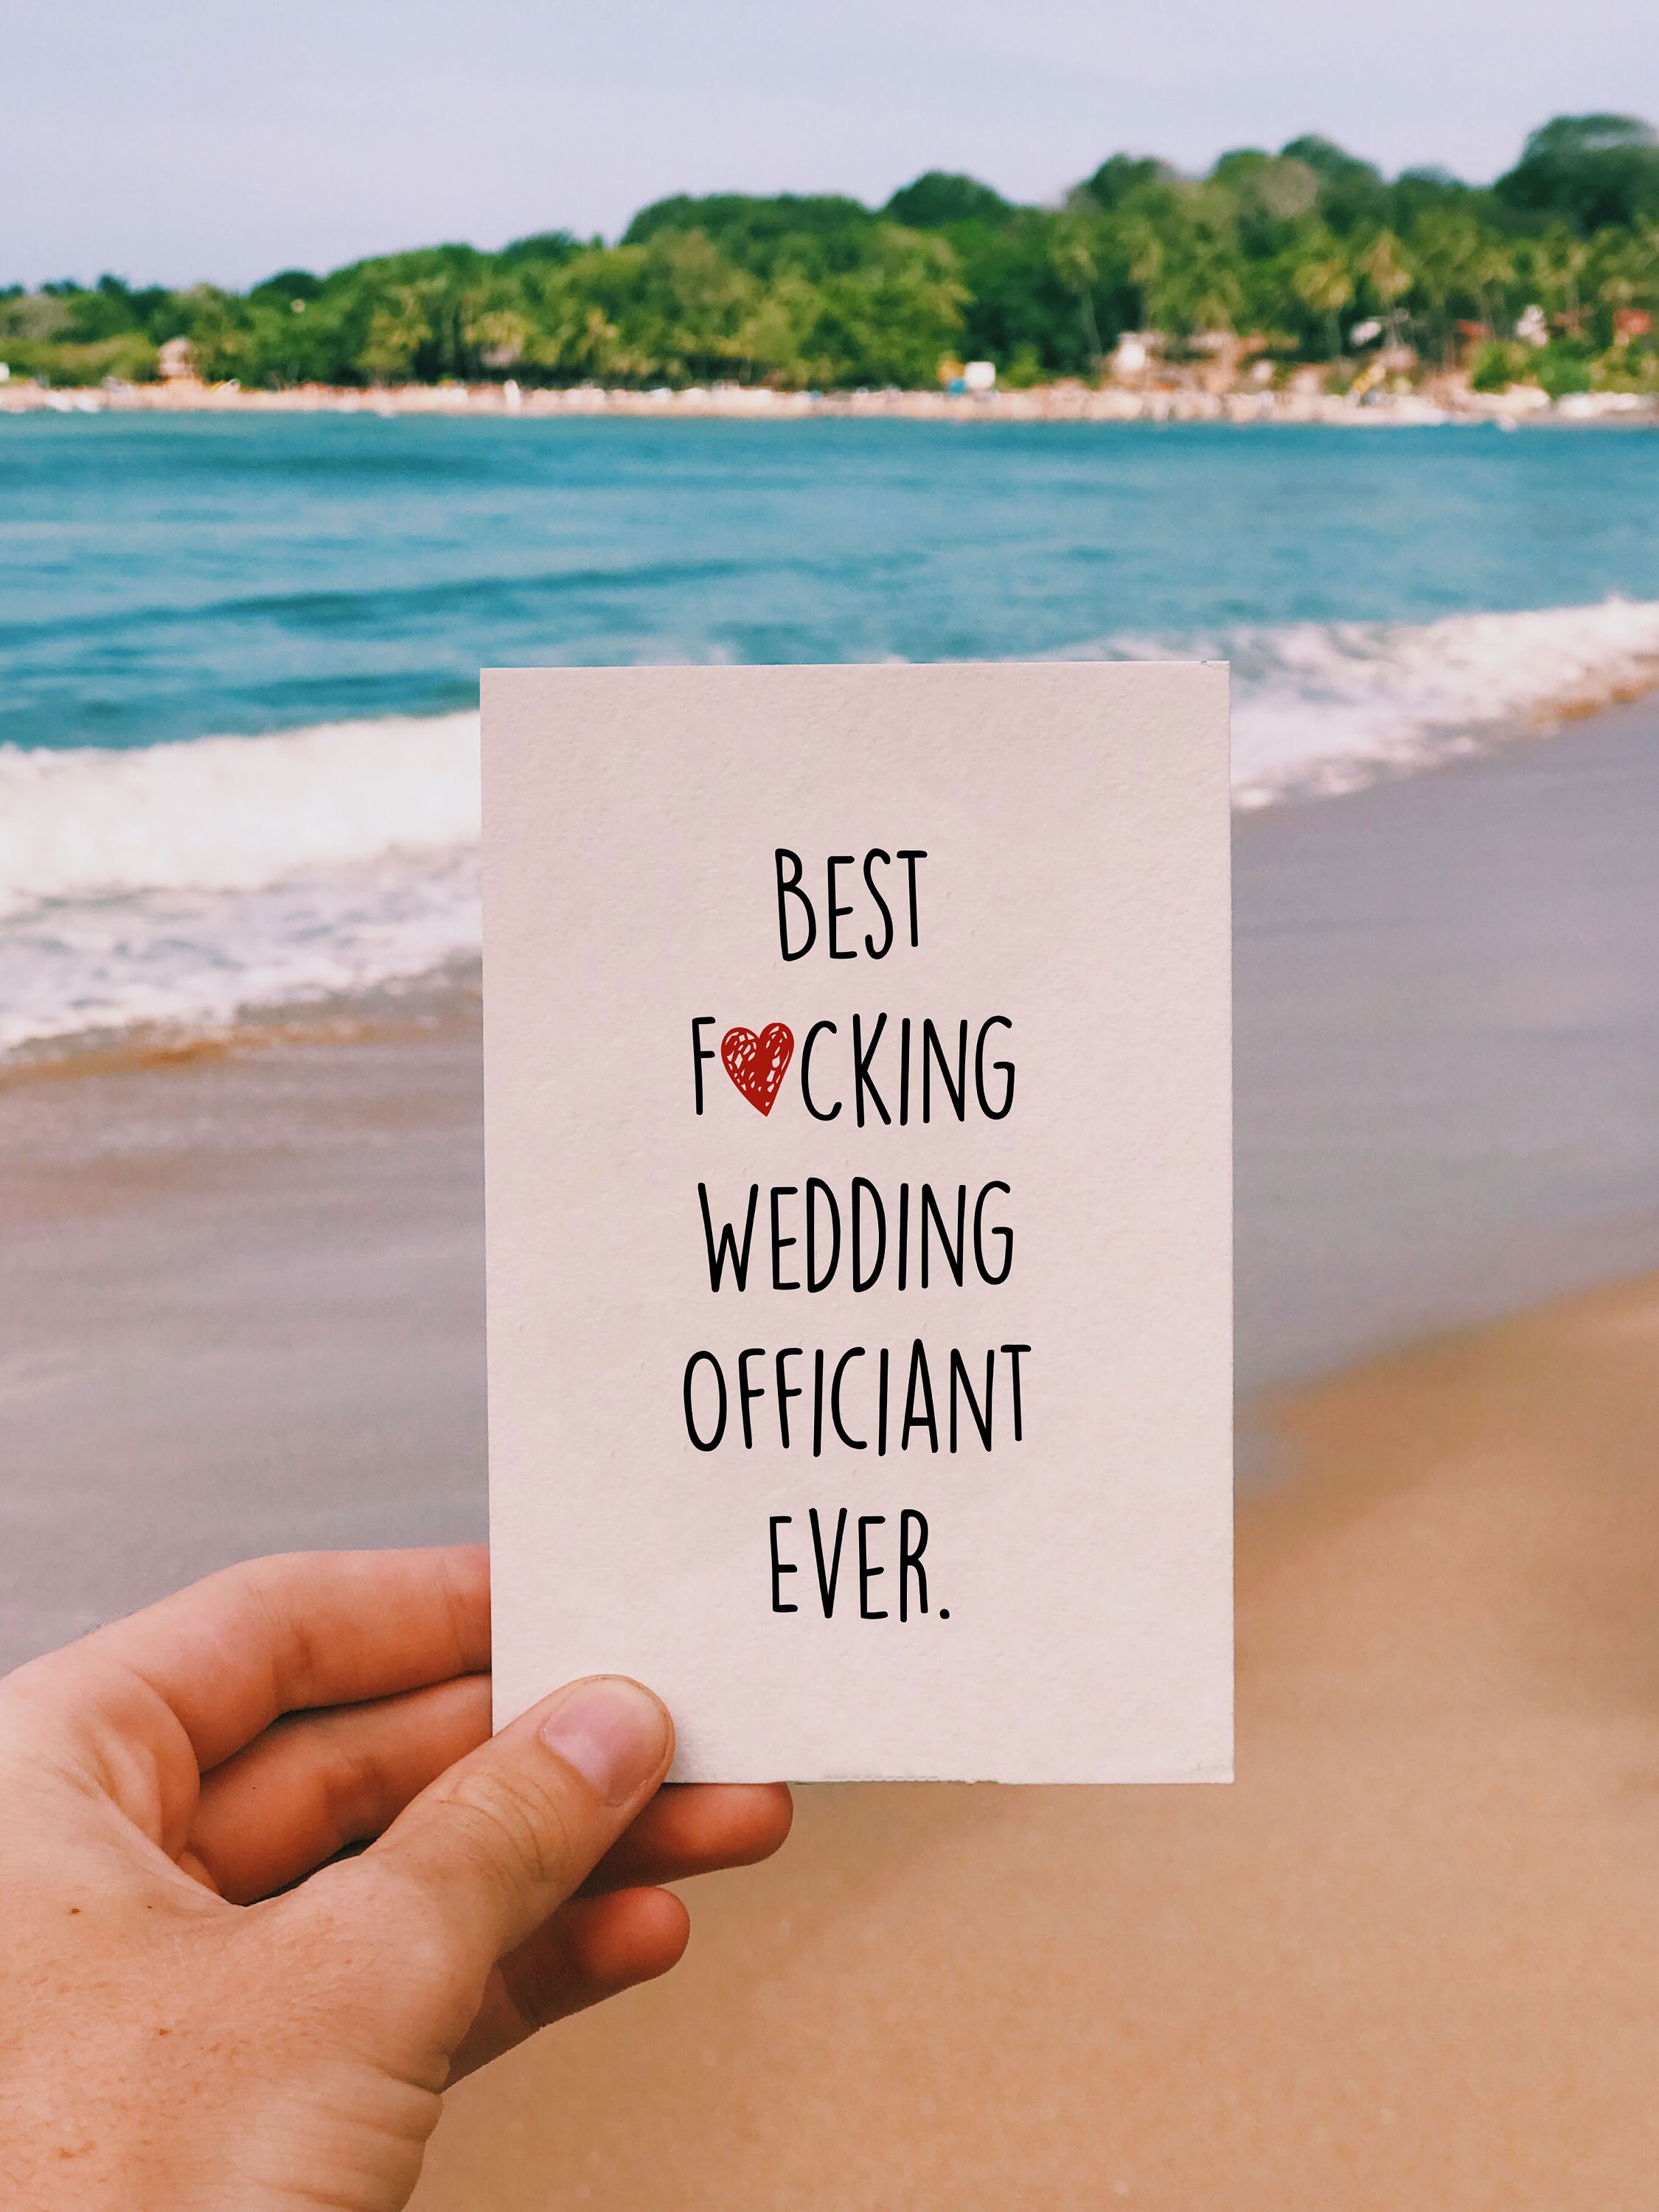 BEST
F❤CKING
WEDDING
OFFICIANT
EVER.